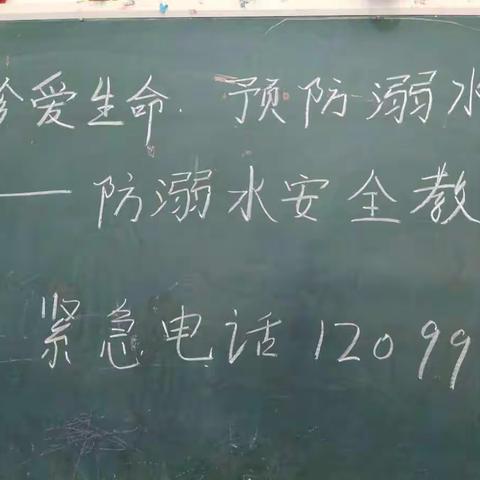 珍爱生命.预防溺水
——防溺水安全教
紧急电话12099